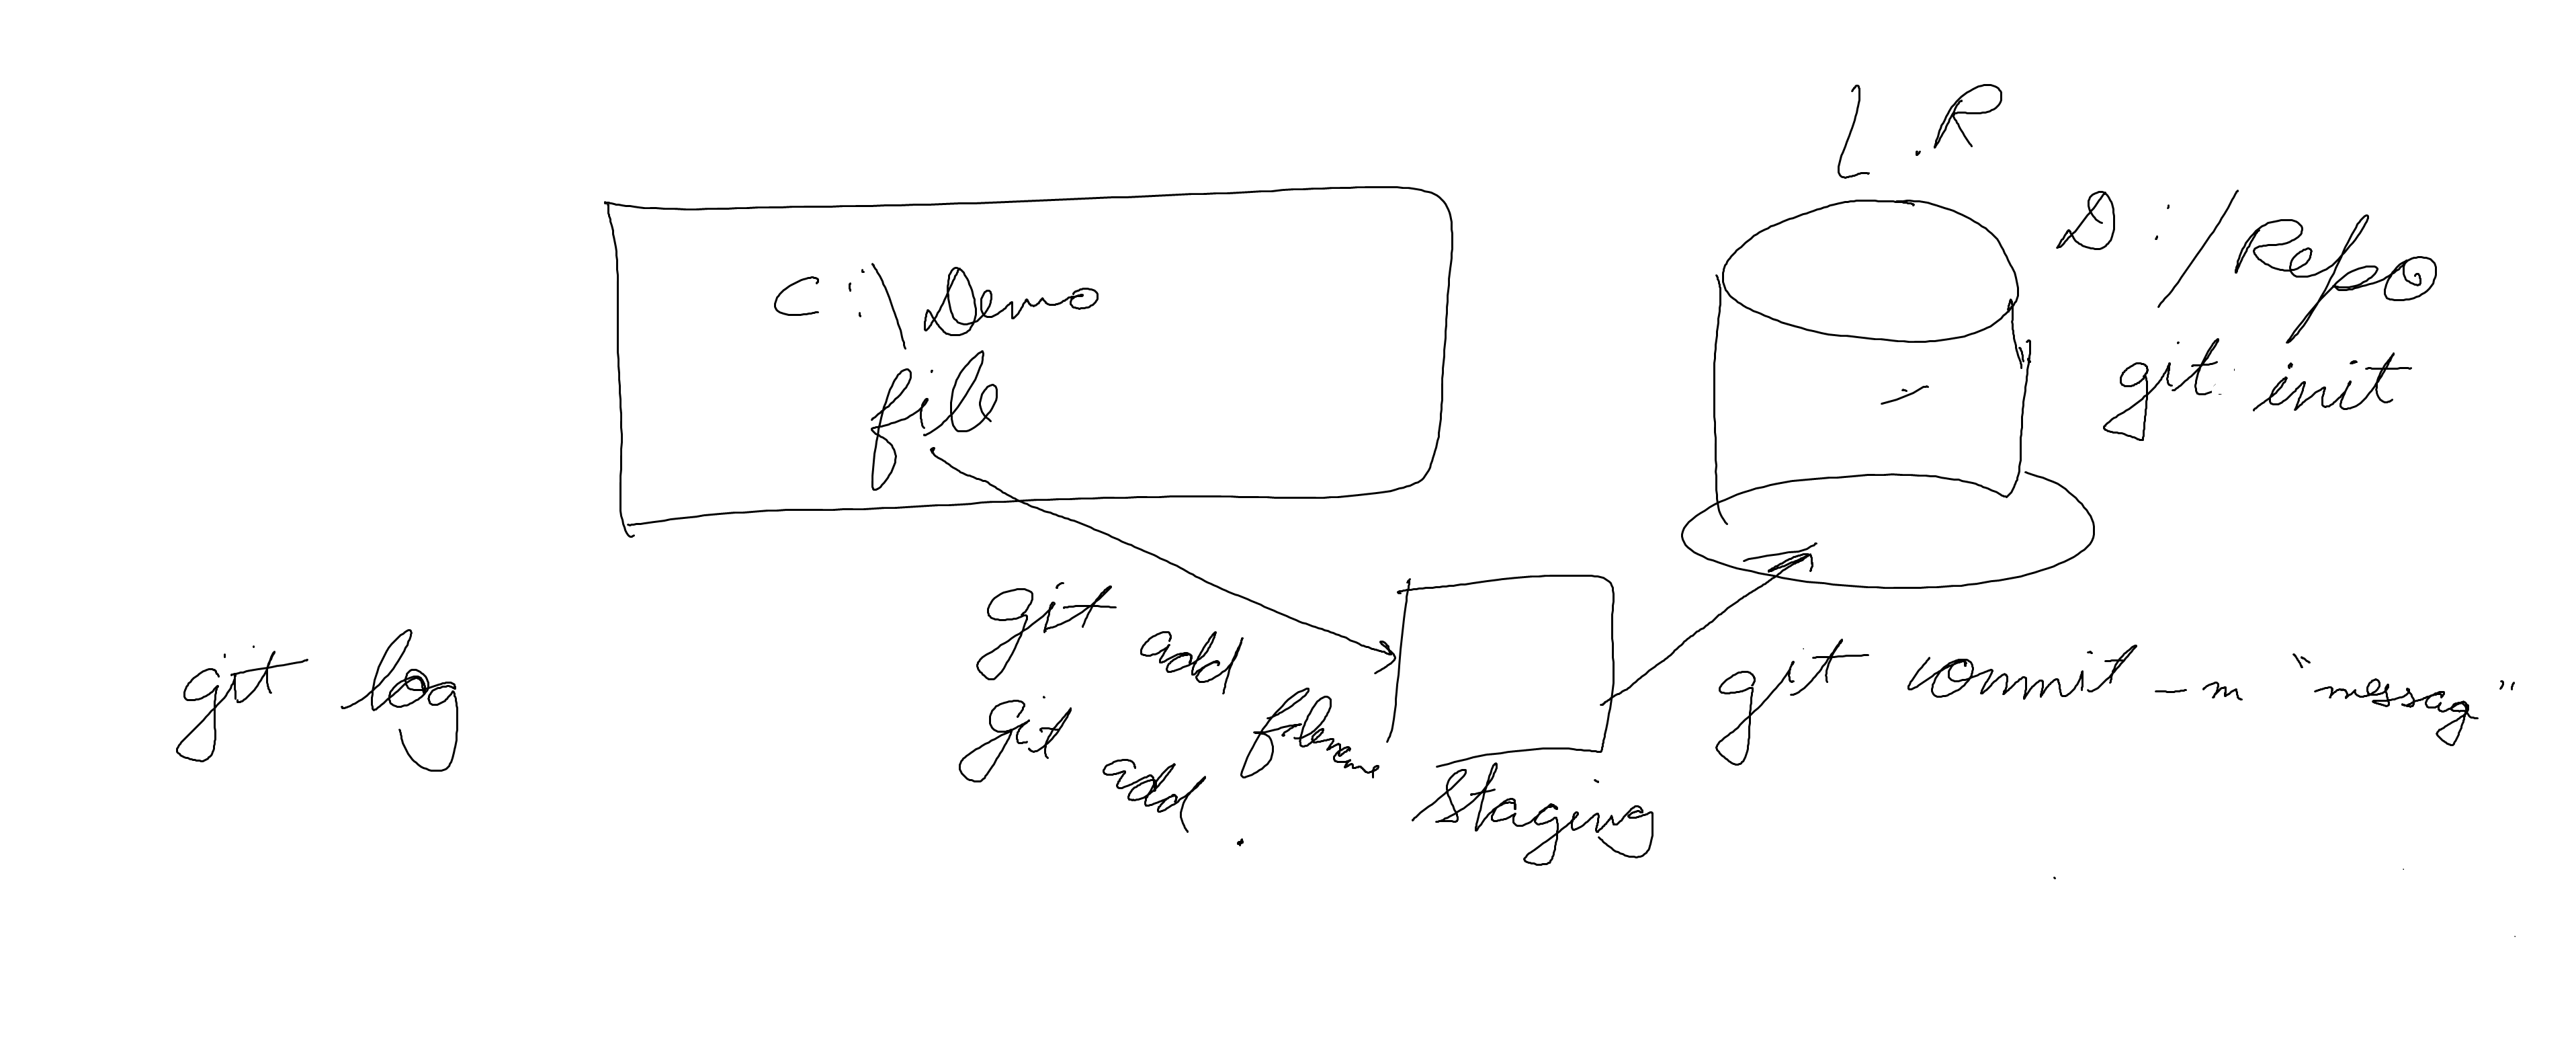 L.R
D:/Repo
git init
C:\Demo
file
git add filename
git add .
Staging
git commit -m "messag"
git log